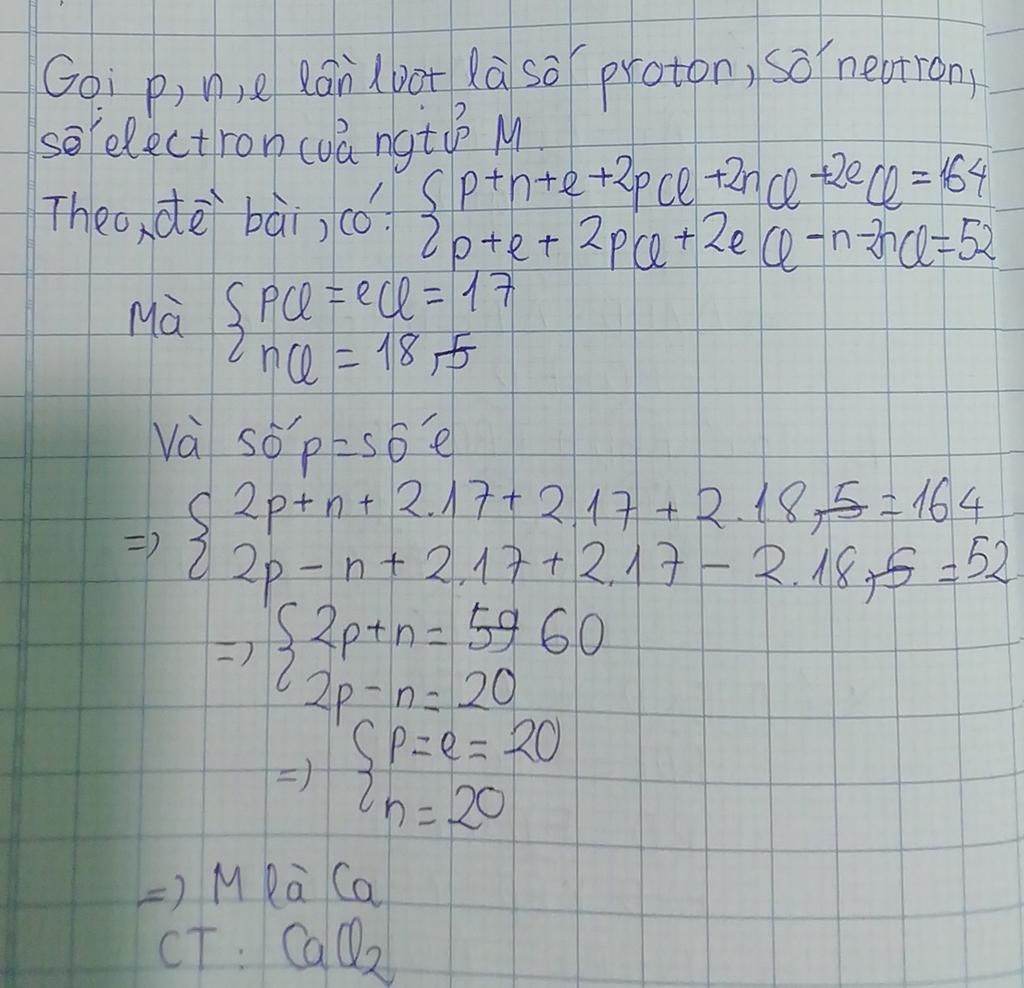 Gọi p, n, e lần lượt là số proton, số neutron,
số electron của ngtử M.
Theo đề bài, có: { p+n+e+2pCl+2nCl+2eCl=164
p+e+2pCl+2eCl-n-2nCl=52
Mà { pCl=eCl=17
nCl=18,5
Và số p=số e
=> { 2p+n+2.17+2.17+2.18,5=164
2p-n+2.17+2.17-2.18,5=52
=> { 2p+n=59 60
2p-n=20
=> { p=e=20
n=20
=> M là Ca
CT: CaCl2